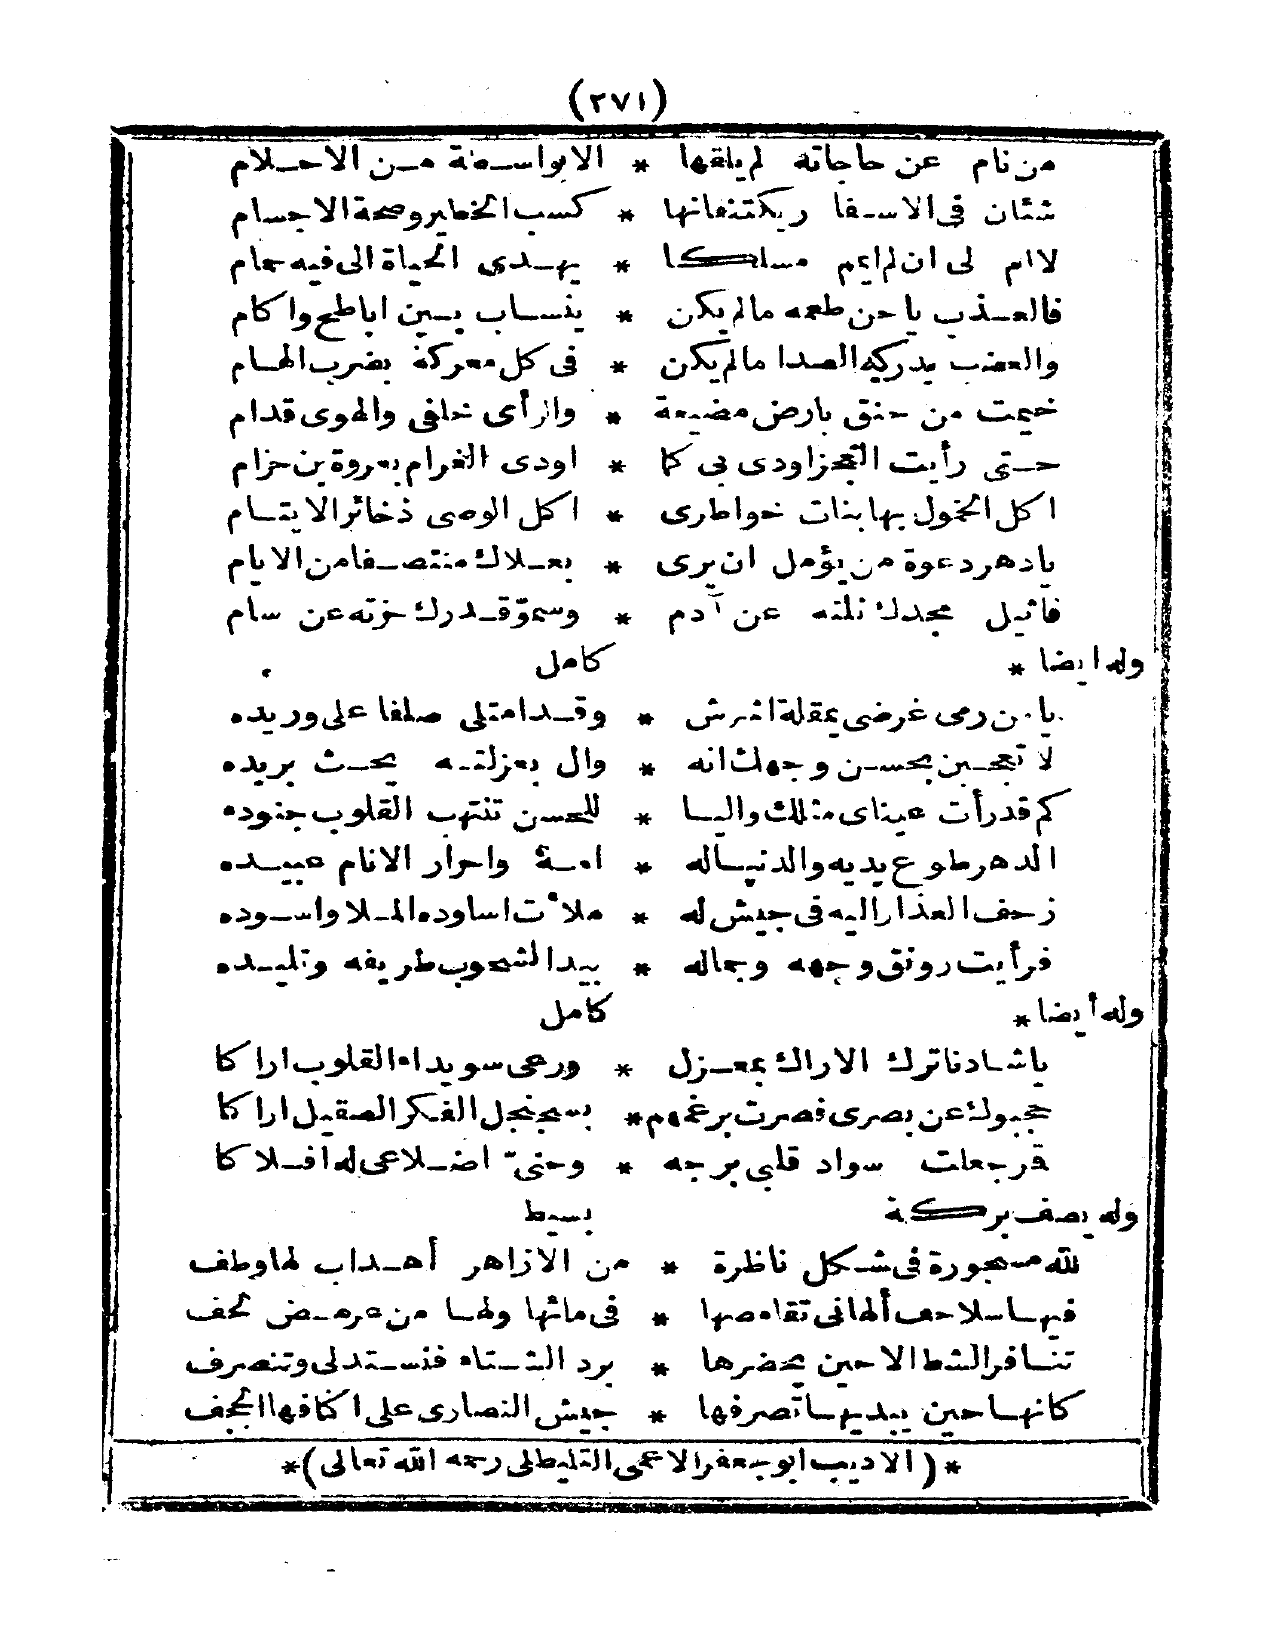 (٢٧١)
من نام عن حاجاته لم يلقها * الا بواسطة من الاحلام
شتان فى الاسفار يكتنفانها * كسب الخطير وصحة الاجسام
لاام لى ان لم ايم مسلكا * يهدى الحياة الى فيه حمام
فالعذب ياجن طعمه مالم يكن * ينساب بين اباطح واكام
والعضب يدركه الصدا مالم يكن * فى كل معركة بضرب الهام
خيمت من حنق بارض مضيعة * والرأى خلفى والهوى قدام
حتى رأيت العجز اودى بى كما * اودى الغرام بعروة بن حزام
اكل الخمول بها بنات خواطرى * اكل الوصى ذخائر الايتام
يادهر دعوة من يؤمل ان يرى * بعلاك منتصفا من الايام
فاثيل مجدك نلته عن آدم * وسموّ قدرك حزته عن سام
وله ايضا * كامل
يامن رمى غرضى بمقلة اشرش * وقد امتلى صلفا على وريده
لا تعجبن بحسن وجهك انه * وال بعزلته يحث بريده
كم قدرأت عيناى مثلك واليا * للحسن تنتهب القلوب جنوده
الدهر طوع يديه والدنيا له * امة واحرار الانام عبيده
زحف العذار اليه فى جيش له * ملأت اساوده الملا واسوده
فرأيت رونق وجهه وجماله * بيد الشحوب طريفه وتليده
وله أيضا * كامل
ياشادنا ترك الاراك بمعزل * ورعى سويداء القلوب اراكا
حجبوك عن بصرى فصرت برغمهم * بسجنجل الفكر الصقيل اراكا
قر جعلت سواد قلبى برجه * وحنىّ اضلاعى له افلاكا
وله يصف بركة بسيط
لله مسجورة فى شكل ناظرة * من الازاهر أهداب لها وطف
فيها سلاحف ألهانى تقامصها * فى مائها ولها من عرمض لحف
تنافر الشط الاحين يحضرها * برد الشتاء فتستدلى وتنصرف
كانها حين يبديها تصرفها * جيش النصارى على اكتافها الجحف
* (الاديب ابو جعفر الاعمى التطيلى رحمه الله تعالى) *